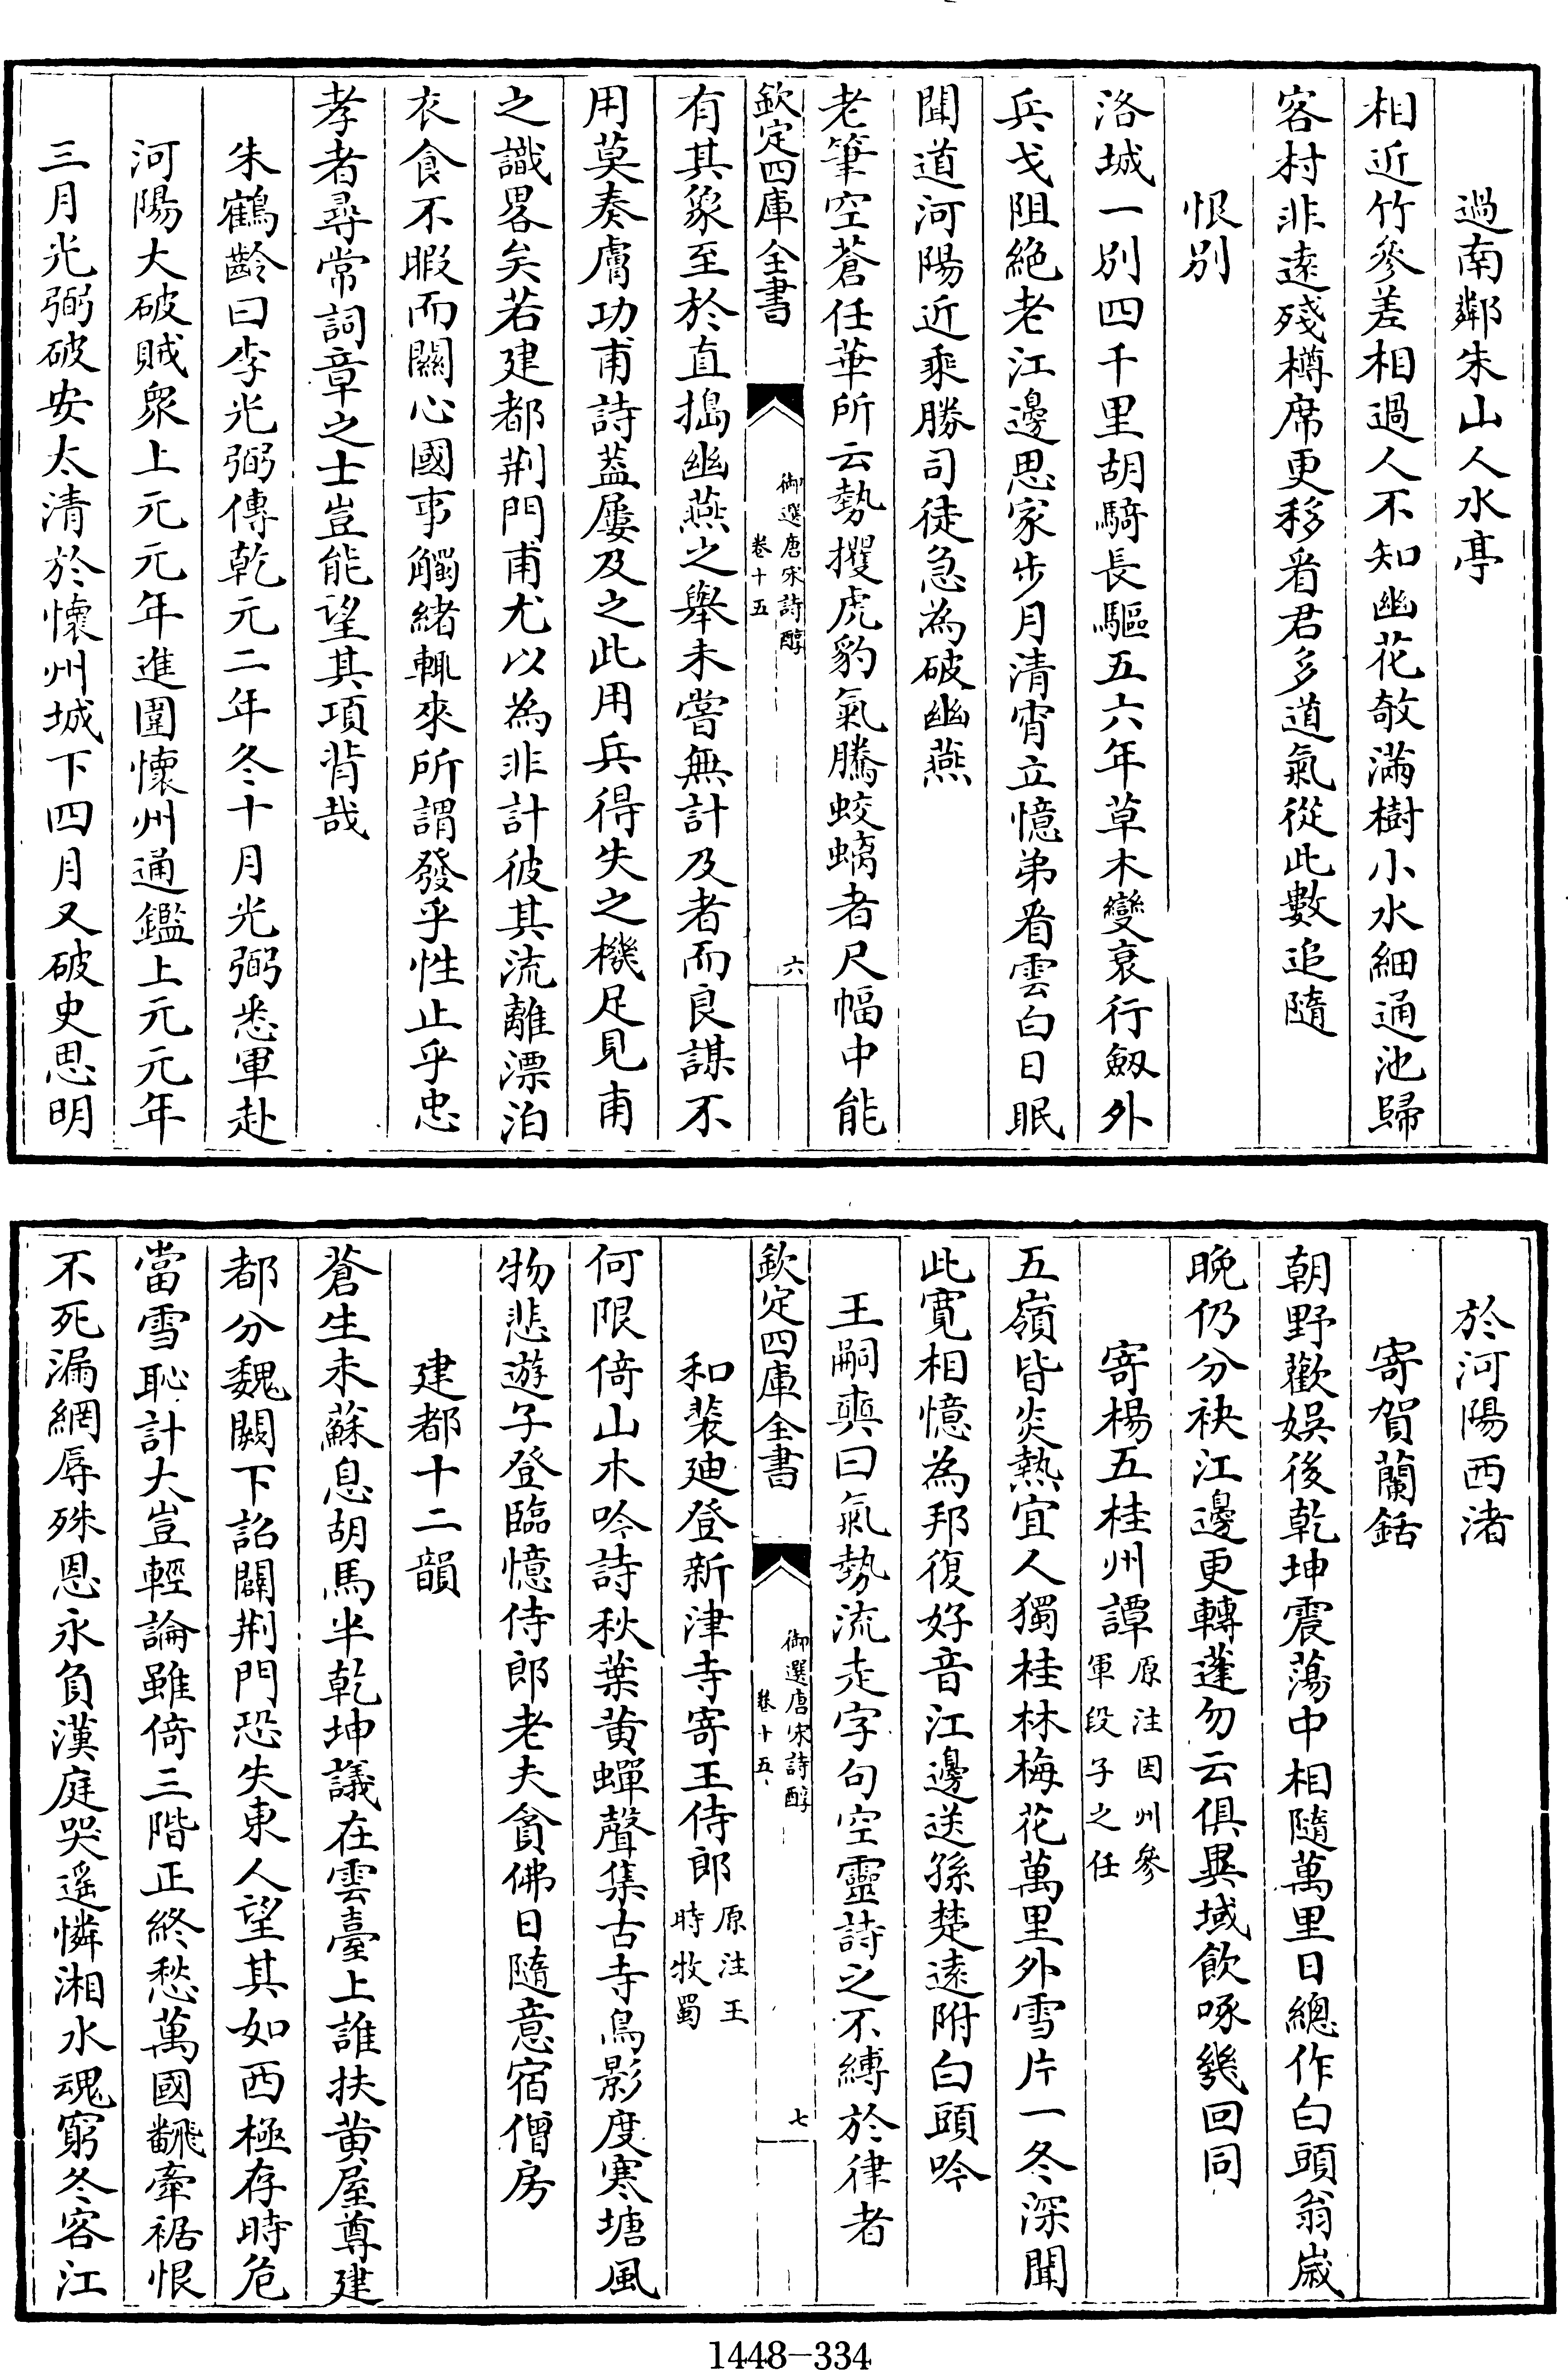 過南鄰朱山人水亭
相近竹參差相過人不知幽花欹滿樹小水細通池歸
客村非遠殘樽席更移看君多道氣從此數追隨
恨别
洛城一别四千里胡騎長驅五六年草木變衰行劒外
兵戈阻絶老江邊思家步月清宵立憶弟看雲白日眠
聞道河陽近乘勝司徒急為破幽燕
老筆空蒼任華所云勢攫虎豹氣騰蛟螭者尺幅中能
欽定四庫全書
御選唐宋詩醇
卷十五
六
有其象至於直搗幽燕之舉未嘗無計及者而良謀不
用莫奏膚功甫詩葢屢及之此用兵得失之機足見甫
之識畧矣若建都荆門甫尤以為非計彼其流離漂泊
衣食不暇而關心國事觸緒輒來所謂發乎性止乎忠
孝者尋常詞章之士豈能望其項背哉
朱鶴齡曰李光弼傳乾元二年冬十月光弼悉軍赴
河陽大破賊衆上元元年進圍懷州通鑑上元元年
三月光弼破安太清於懷州城下四月又破史思明
於河陽西渚
寄賀蘭銛
朝野歡娱後乾坤震蕩中相隨萬里日總作白頭翁嵗
晚仍分袂江邊更轉蓬勿云俱異域飲啄幾回同
寄楊五桂州譚
原注因州參
軍段子之任
五嶺皆炎熱宜人獨桂林梅花萬里外雪片一冬深聞
此寛相憶為邦復好音江邊送孫楚遠附白頭吟
王嗣奭曰氣勢流走字句空靈詩之不縛於律者
欽定四庫全書
御選唐宋詩醇
卷十五
七
和裴廸登新津寺寄王侍郎
原注王
時牧蜀
何限倚山木吟詩秋葉黄蟬聲集古寺鳥影度寒塘風
物悲遊子登臨憶侍郎老夫貪佛日隨意宿僧房
建都十二韻
蒼生未蘇息胡馬半乾坤議在雲臺上誰扶黄屋尊建
都分魏闕下詔闢荆門恐失東人望其如西極存時危
當雪恥計大豈輕論雖倚三階正終愁萬國飜牽裾恨
不死漏網辱殊恩永負漢庭哭遥憐湘水魂窮冬客江
1448-334